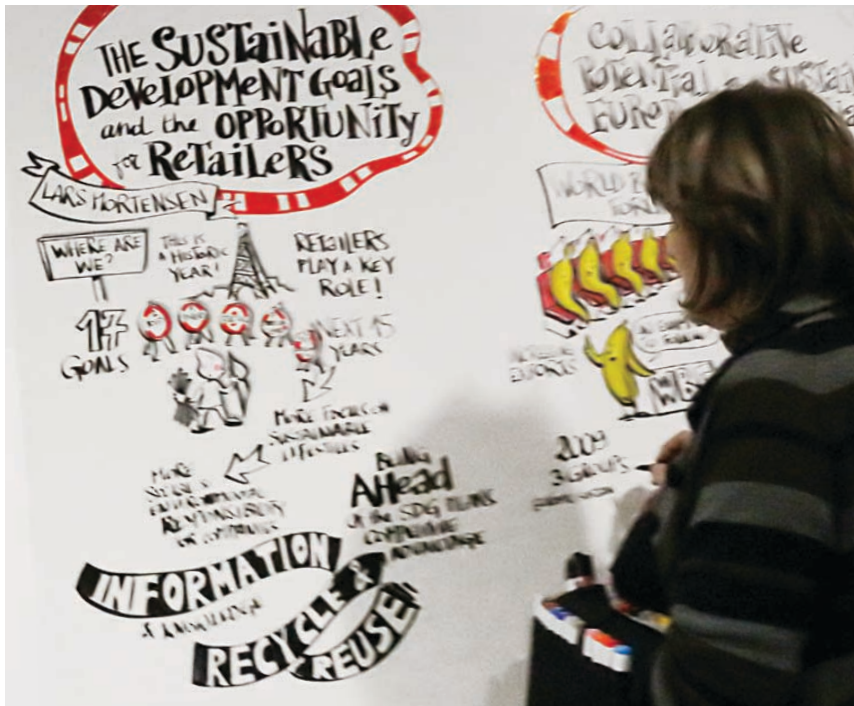 THE SUSTaiNaBLE
DeVeLOPMeNT GOaLS
and the OPPORTUNiTY
for ReTaiLERS
LARS MORTENSEN
WHERE ARE
WE?
THIS IS
A HISTORIC
YEAR!
RETAILERS
PLAY A KEY
ROLE!
17
GOALS
NEXT 15
YEARS
MORE FOCUS ON
SUSTAINABLE
LIFESTYLES
MORE
ENVIRONMENTAL
RESPONSIBILITY
OF COMPANIES
BEING
AHead
OF THE SDG
INFORMATION
& KNOWLEDGE
RECYCLE &
REUSE!
COLLABORATIVE
POTENTIAL
SUSTAIN
EUROP
WORLD B
FORU
EFFORTS
WB
2009
3 GROUPS